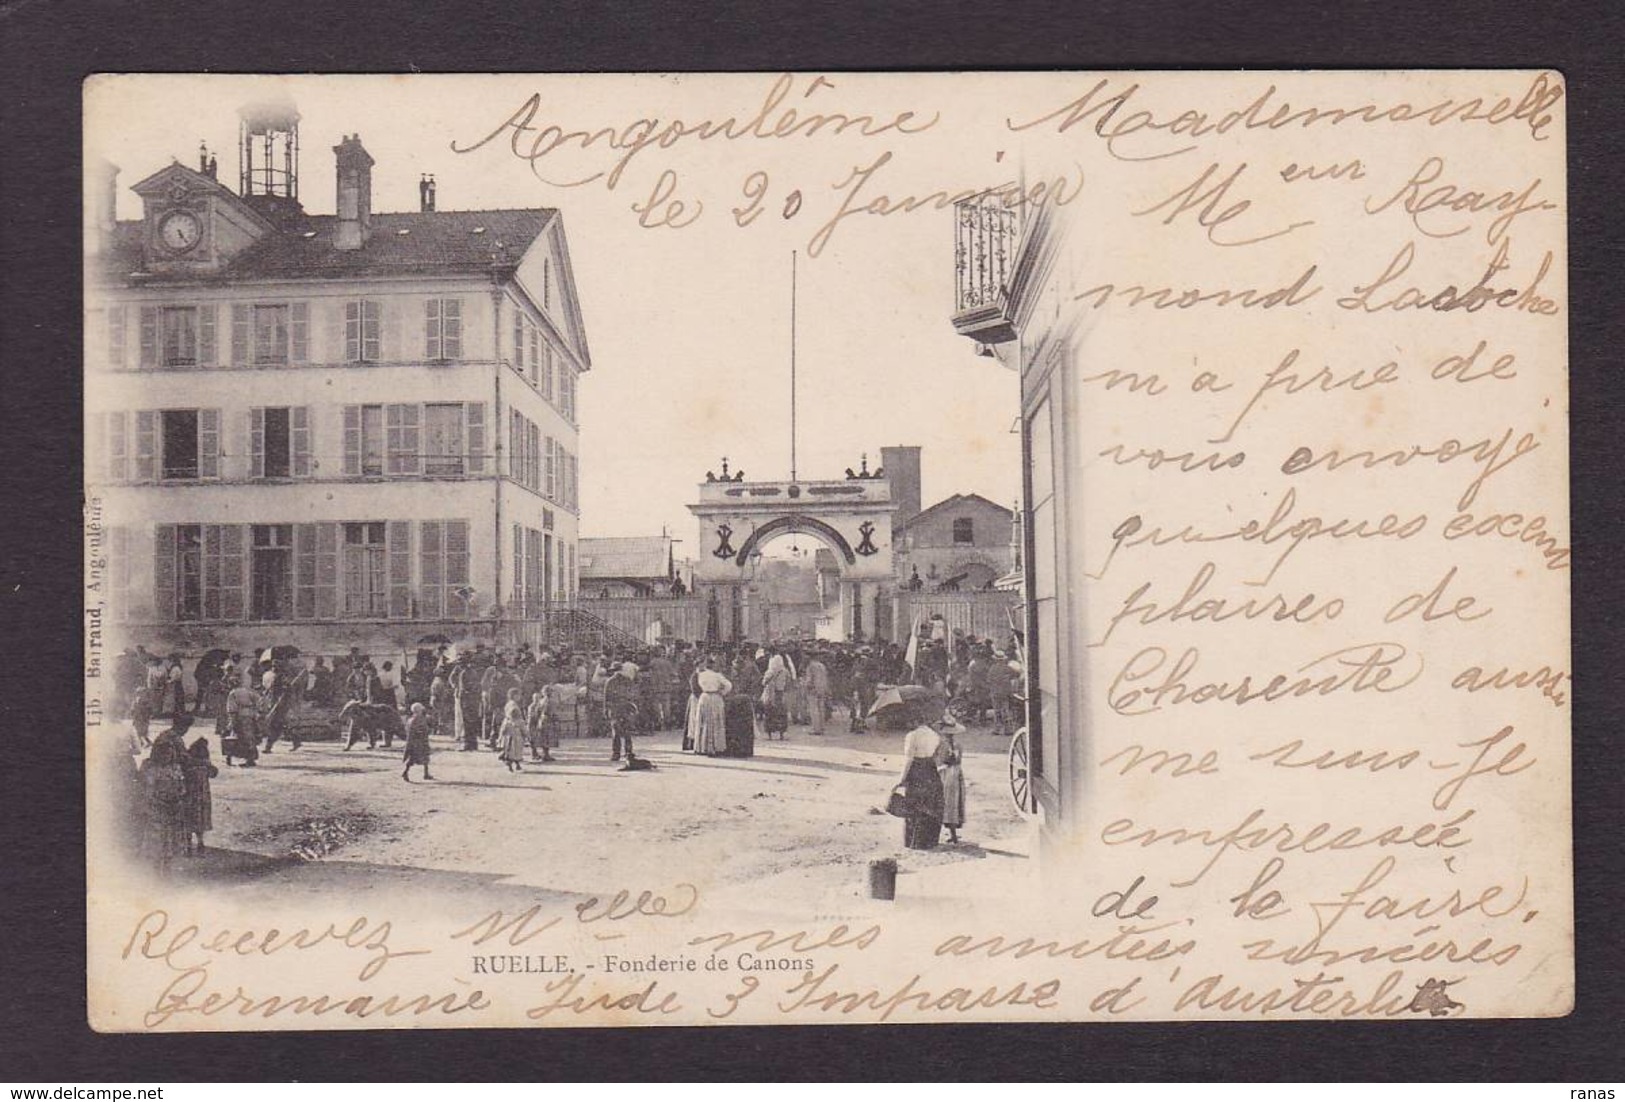 Angoulême
le 20 Janvier
Mademoiselle
Meur Ray-
mond Laroche
m'a prié de
vous envoyé
quelques exem
plaires de
Charente aussi
me suis-je
empressée
de le faire.
Recevez Melle mes amitiés sincères
Germaine Jude 3 Impasse d'Austerlitz
RUELLE. - Fonderie de Canons
Lib. Bairaud, Angoulême
ranas